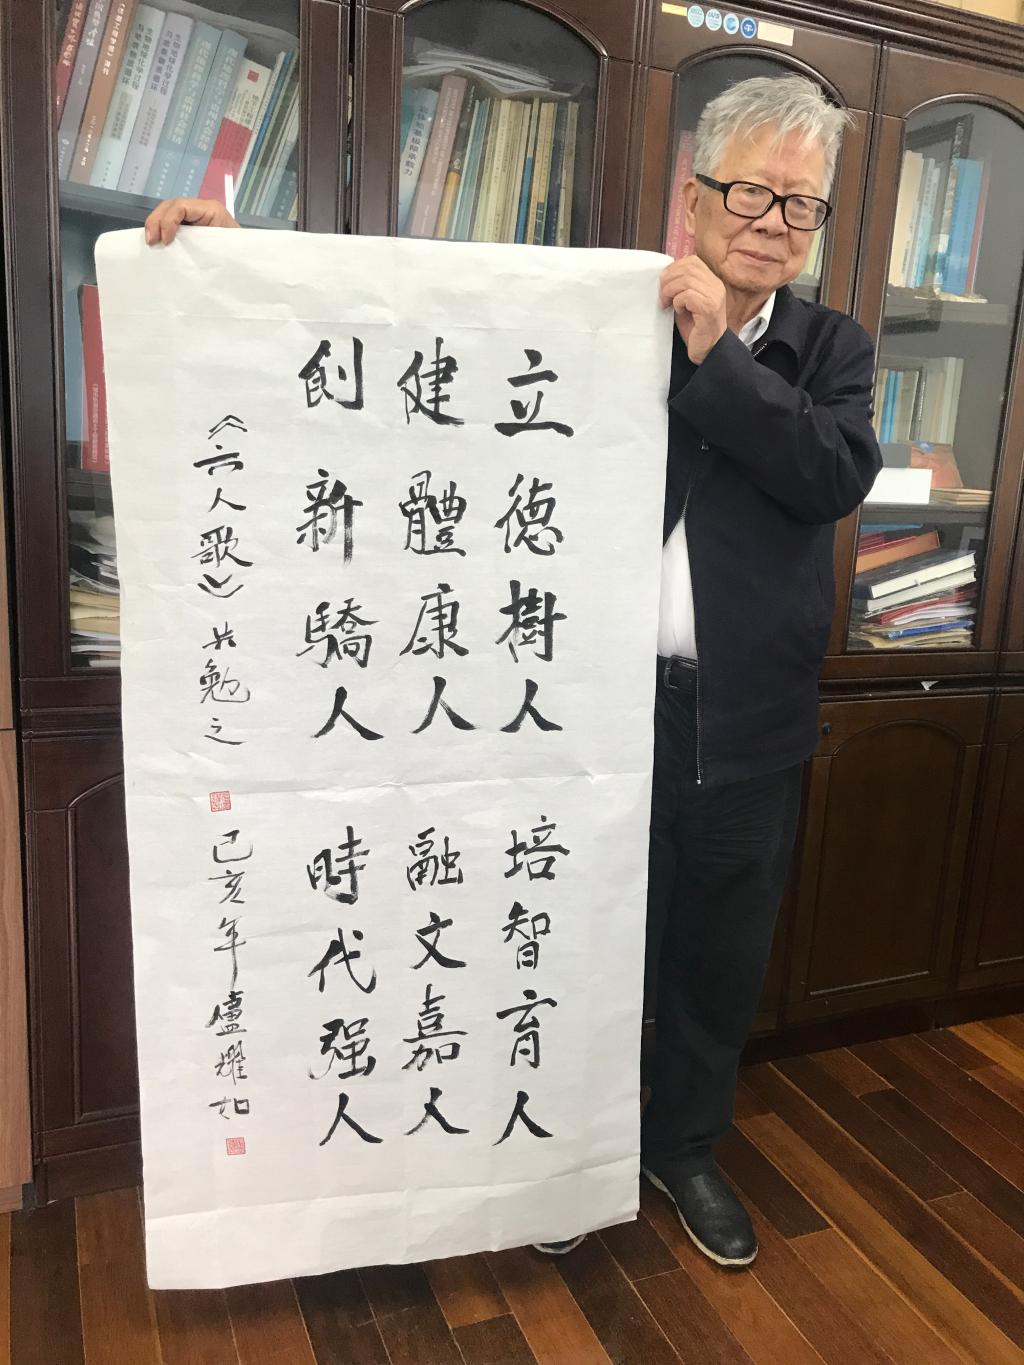 立德樹人 培智育人
健體康人 融文嘉人
創新驕人 時代强人
《六人歌》共勉之
己亥年 盧耀如